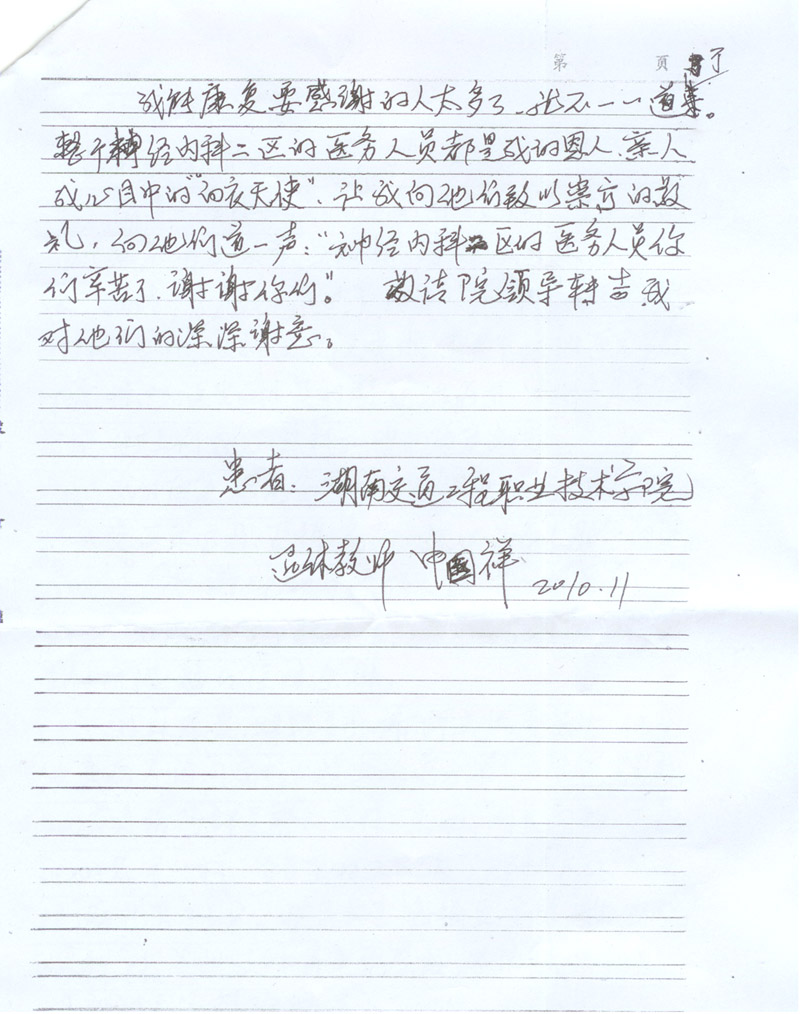 第 页
我能康复要感谢的人太多了、我不一一道来了。
整个神经内科二区的医务人员都是我的恩人、亲人
我心目中的"白衣天使"、让我向他们致以崇高的敬
礼，向他们道一声："神经内科二区的医务人员你
们辛苦了、谢谢你们"。 敬请院领导转告我
对他们的深深谢意。
患者：湖南交通工程职业技术学院
退休教师 国祥 2010.11